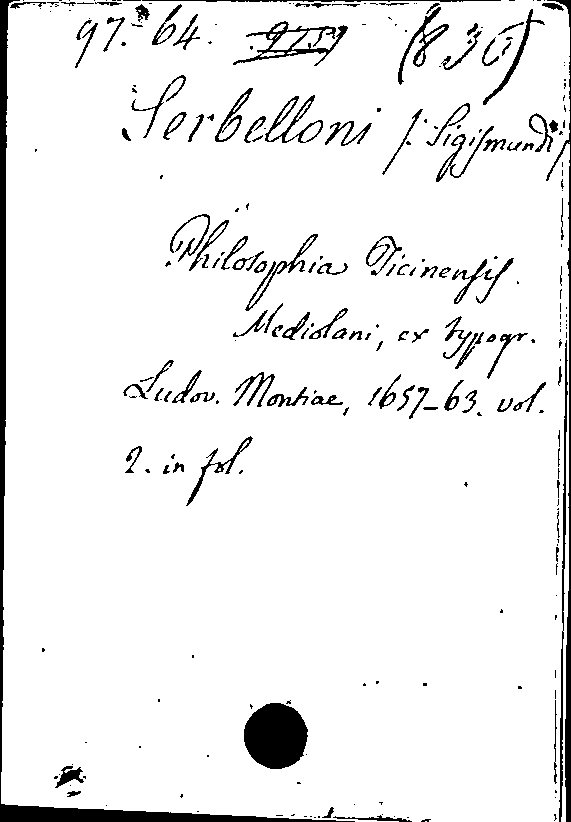 97. 64. 9759 (836)
Serbelloni /: Sigismundi /
Philosophia Ticinensis.
Mediolani, ex typogr.
Ludov. Montiae, 1657-63. vol.
2. in fol.